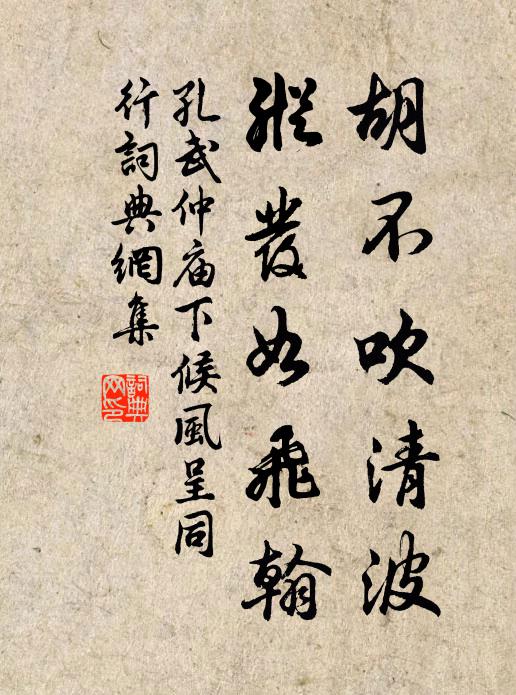 胡不吹清波
縱發如飛翰
孔武仲庙下候風呈同
行詞典網集
詞典
网印